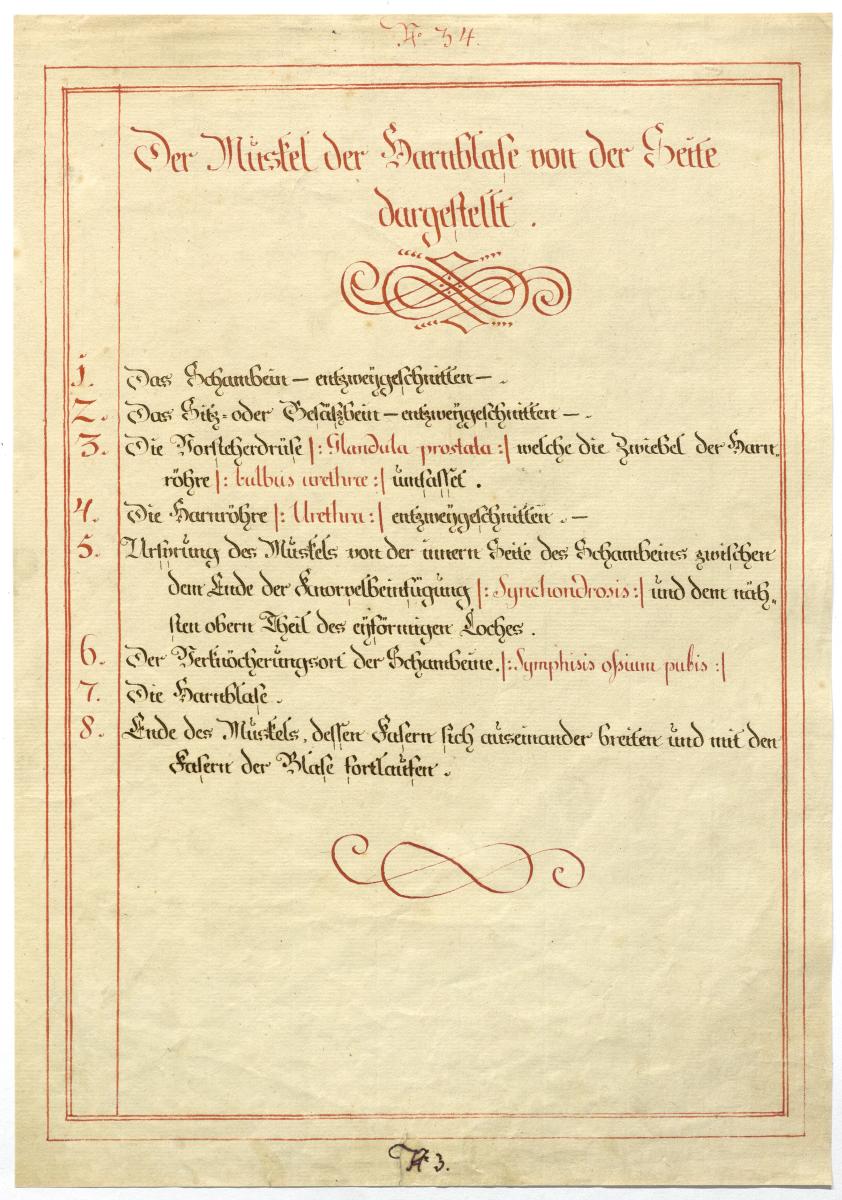 N° 34.
Der Muskel der Harnblase von der Seite
dargestellt.
1. Das Schambein — entzweygeschnitten — .
2. Das Sitz- oder Gesäßbein — entzweygeschnitten — .
3. Die Vorsteherdrüse |: Glandula prostata :| welche die Zwiebel der Harn-
röhre |: bulbus urethræ :| umfasset .
4. Die Harnröhre |: Urethra :| entzweygeschnitten . —
5. Ursprung des Muskels von der innern Seite des Schambeins zwischen
dem Ende der Knorpelbeinfügung |: Synchondrosis :| und dem näch-
sten obern Theil des eyförmigen Loches .
6. Der Verknöcherungsort der Schambeine. |: Symphisis ossium pubis :|
7. Die Harnblase .
8. Ende des Muskels, dessen Fasern sich auseinander breiten und mit den
Fasern der Blase fortlaufen .
3.